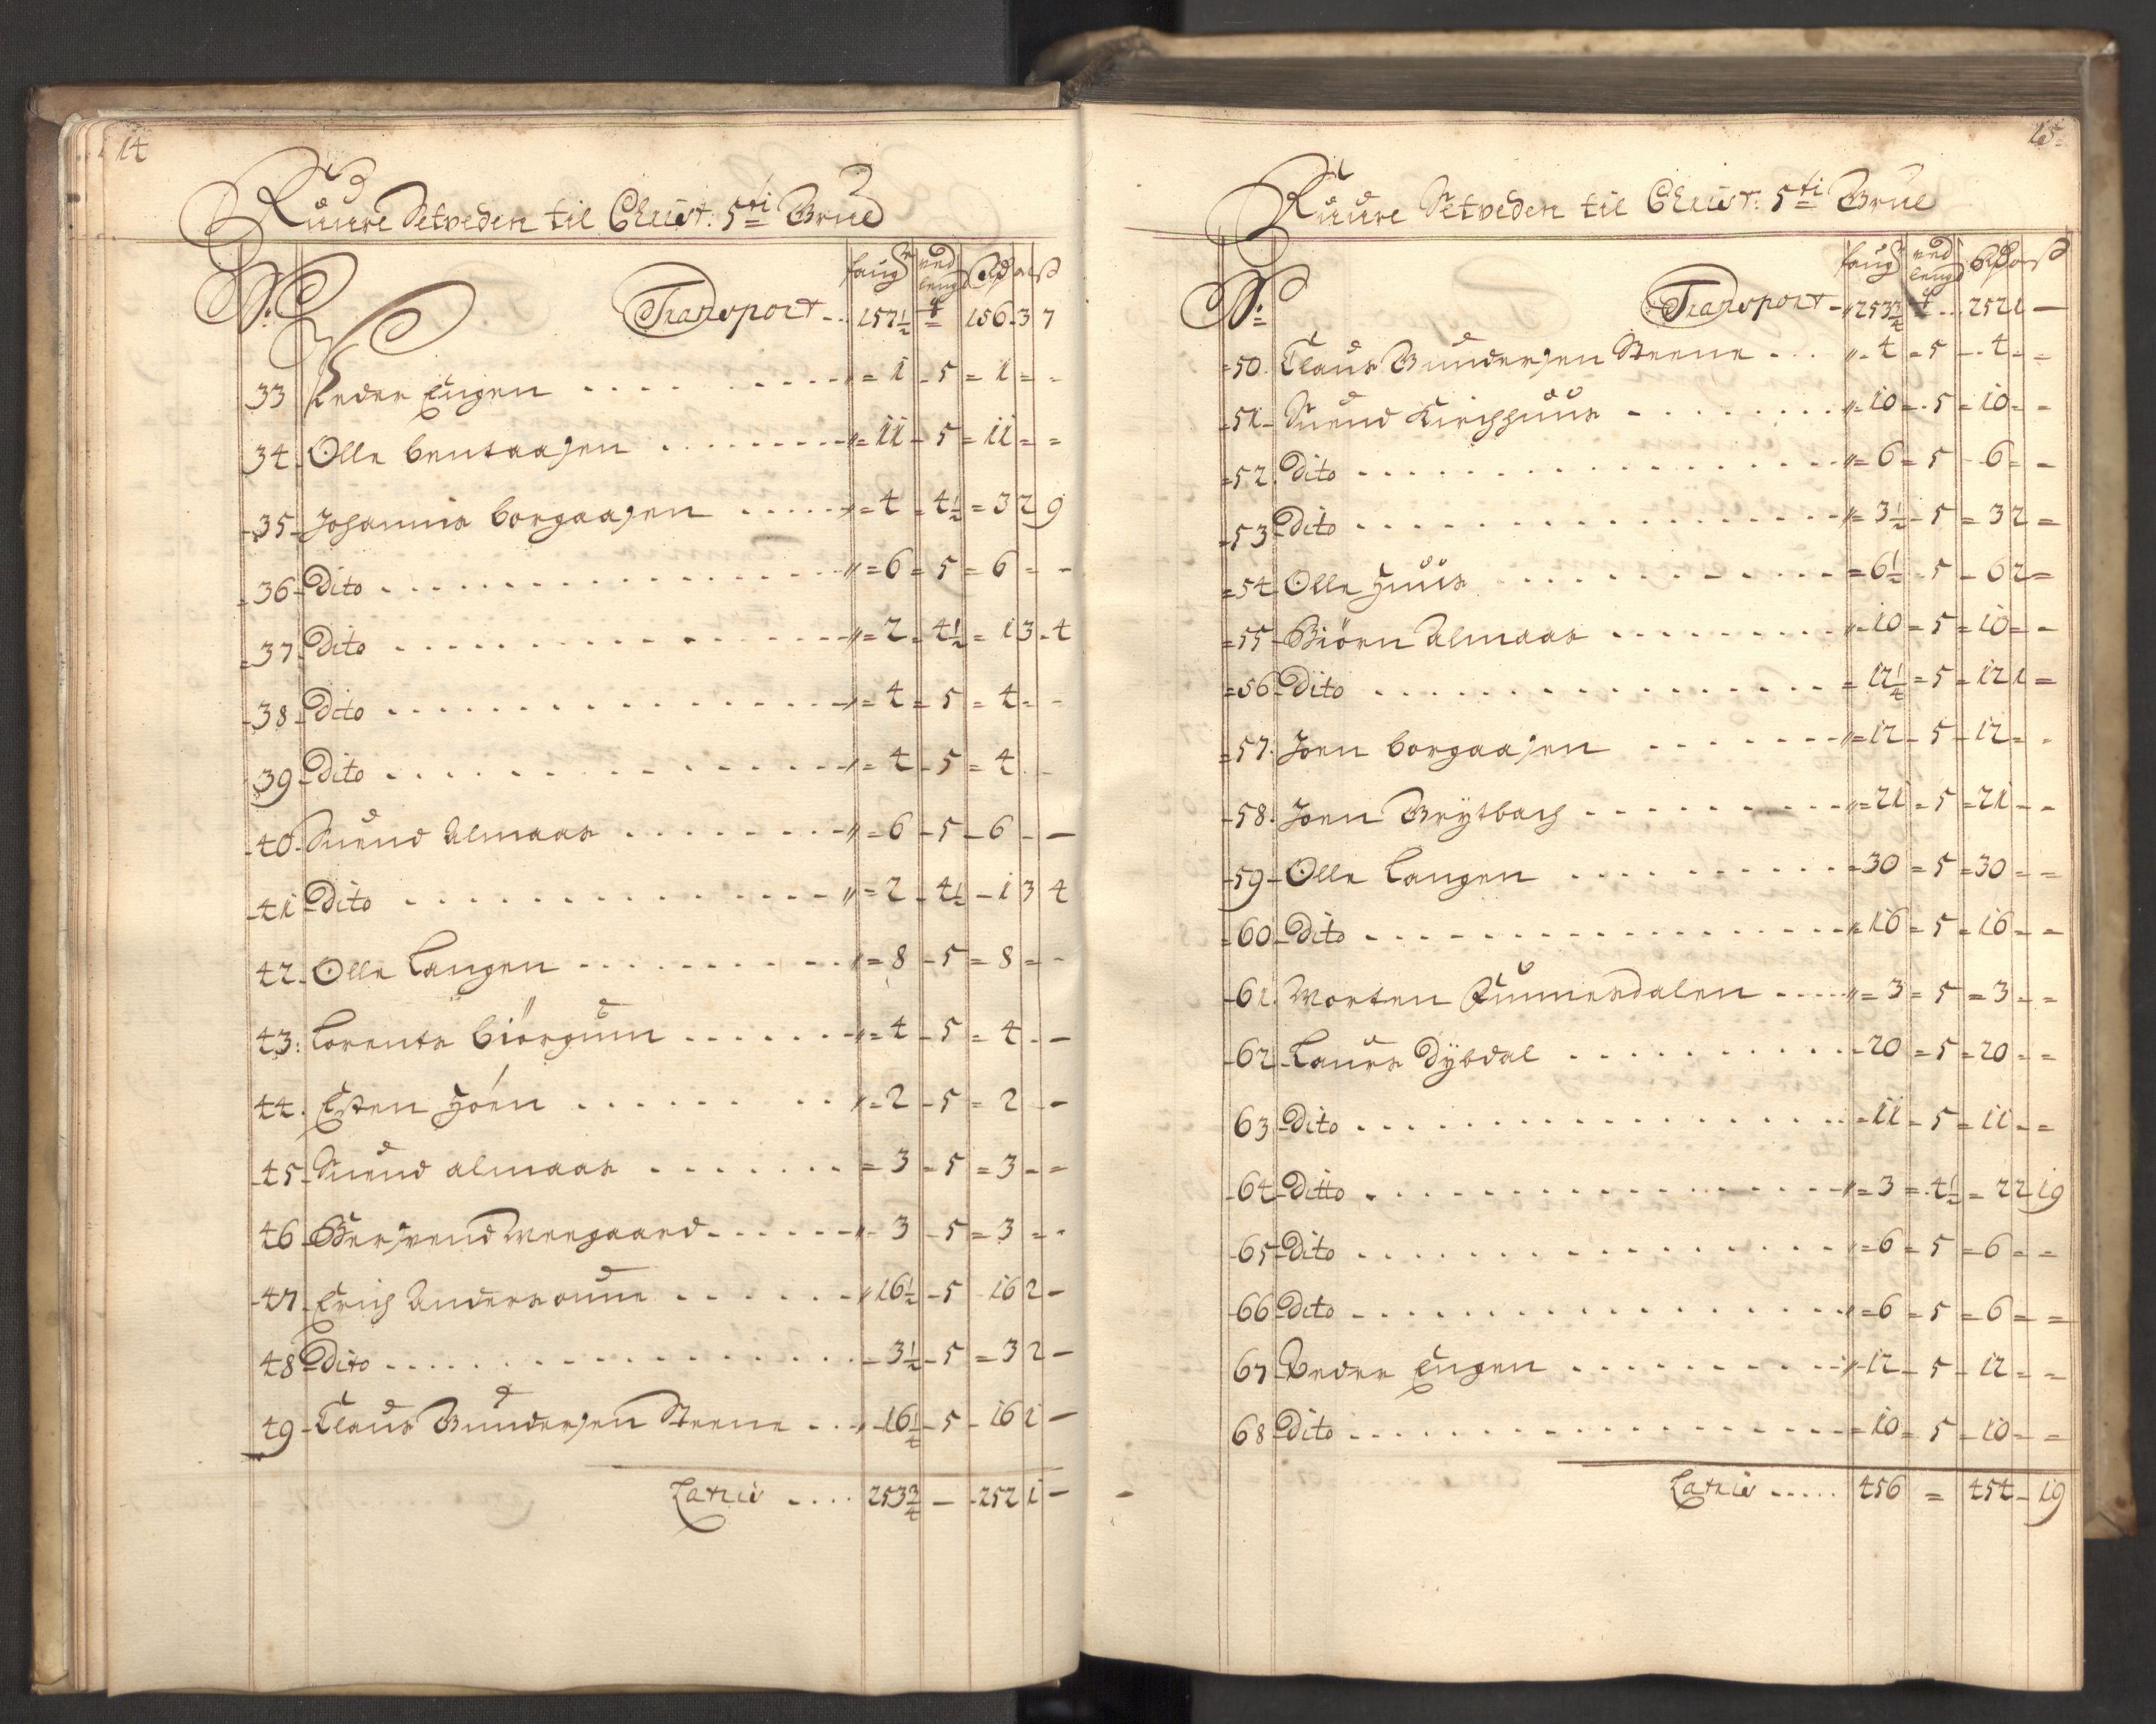 14
Kuure Setveden til Christ: 5ti Grue
No: faug ved lengd Rd ort ß
Transport - 157½ 4 156 - 3 7
33 Peder Engen = 1 - 5 = 1 = -
34. Olle bentaasen = 11 - 5 = 11 = =
35 Johannis borgaasen = 4 - 4½ = 3 2 9
36 Dito = 6 = 5 = 6 = -
37 Dito = 2 - 4½ = 1 3 - 4
38 Dito = 4 = 5 = 4 - -
39 Dito = 4 - 5 = 4 - -
40. Suend Almaas = 6 - 5 - 6 - -
41 Dito = 2 - 4½ - 1 3 4
42. Olle Langen = 8 - 5 = 8 = -
43: Lorents biörgum = 4 - 5 = 4 - -
44. Esten Hóen - 2 - 5 = 2 - -
45 Suend almaas = 3 - 5 = 3 - =
46 Bersvend Wergaard - 3 - 5 = 3 = -
47 Erich Andersoune 16½ - 5 16 2 -
48 Dito - 3½ - 5 = 3 2 -
49 Claus Gundersen Steene - 16¼ - 5 - 16 1 -
Latris 253¾ - - 252 1 -
15
Kuure Setveden til Christ: 5ti Grue
No: faug ved lengd Rd ort ß
Transport - 253¾ 4 252 1 -
50. Claus Gundersen Steene - 4 = 5 - 4 - =
51 Suend Kirchhuus - 10 - 5 = 10 = -
52. Dito = 6 = 5 - 6 = -
53 Dito = 3½ - 5 = 3 2 =
54 Olle Huus = 6½ - 5 - 6 2 =
55 Biörn Almaas - 10 = 5 = 10 = -
56 Dito = 12¼ = 5 = 12 1 =
57. Joen borgaasen = 12 - 5 - 12 = -
58. Joen Brÿtbach = 21 = 5 = 21 - -
59 Olle Langen = 30 = 5 = 30 = =
60 Dito 16 = 5 = 16 - -
61. Morten Rumnesdalen = 3 = 5 = 3 - =
62 Laurs Dÿbdal - 20 = 5 = 20 - =
63 Dito = 11 - 5 = 11 - =
64 Ditto = 3 = 4½ = 2 2 19
65 Dito = 6 = 5 = 6 = =
66 Dito = 6 = 5 = 6 = =
67 Peder Engen - 12 - 5 - 12 = =
68 Dito = 10 = 5 - 10 = =
Latris 456 = 454 - 19